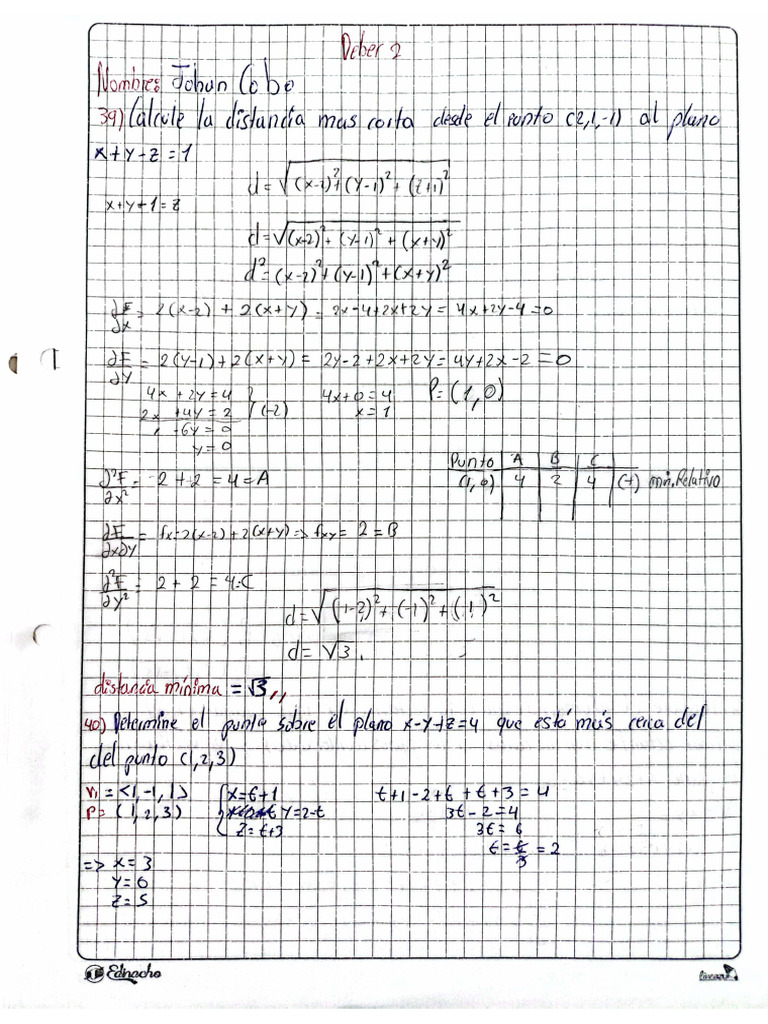 Deber 2
Nombre: Johan Cobo
39) Calcule la distancia mas corta desde el punto (2,1,-1) al plano
x+y-z=1
d=√((x-2)²+(y-1)²+(z+1)²)
x+y-1=z
d=√((x-2)²+(y-1)²+(x+y)²)
d²=(x-2)²+(y-1)²+(x+y)²
∂F/∂x = 2(x-2)+2(x+y)=2x-4+2x+2y=4x+2y-4=0
∂F/∂y = 2(y-1)+2(x+y)=2y-2+2x+2y=4y+2x-2=0
4x+2y=4 4x+0=4 P=(1,0)
2x+4y=2 (-2) x=1
-6y=0
y=0
Punto A B C
(1,0) 4 2 4 (+) min. Relativo
∂²F/∂x² = 2+2=4=A
∂F/∂x∂y = fx=2(x-2)+2(x+y)=> fxy=2=B
∂²F/∂y² = 2+2=4=C
d=√((1-2)²+(-1)²+(1)²)
d=√3
distancia mínima = √3,,
40) Determine el punto sobre el plano x-y+z=4 que está más cerca del
del punto (1,2,3)
n=<1,-1,1> x=t+1 t+1-2+t+t+3=4
P=(1,2,3) y=2-t 3t-2=4
z=t+3 3t=6
t=6/3=2
=> x=3
y=0
z=5
Ednacho